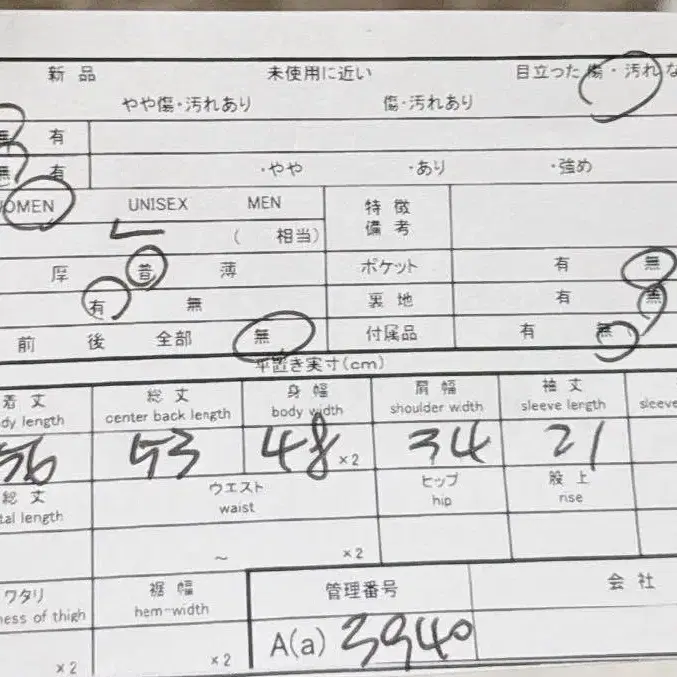 新品 未使用に近い 目立った傷・汚れな
やや傷・汚れあり 傷・汚れあり
無 有
無 有 ・やや ・あり ・強め
WOMEN UNISEX MEN 特徴
( 相当) 備考
厚 普 薄 ポケット 有 無
有 無 裏地 有 無
前 後 全部 無 付属品 有 無
平置き実寸(cm)
着丈 総丈 身幅 肩幅 袖丈
dy length center back length body width shoulder width sleeve length sleeve
56 53 48 ×2 34 21
総丈 ウエスト ヒップ 股上
tal length waist hip rise
~ ×2
ワタリ 裾幅 管理番号 会社
ness of thigh hem-width
×2 ×2 A(a) 3940